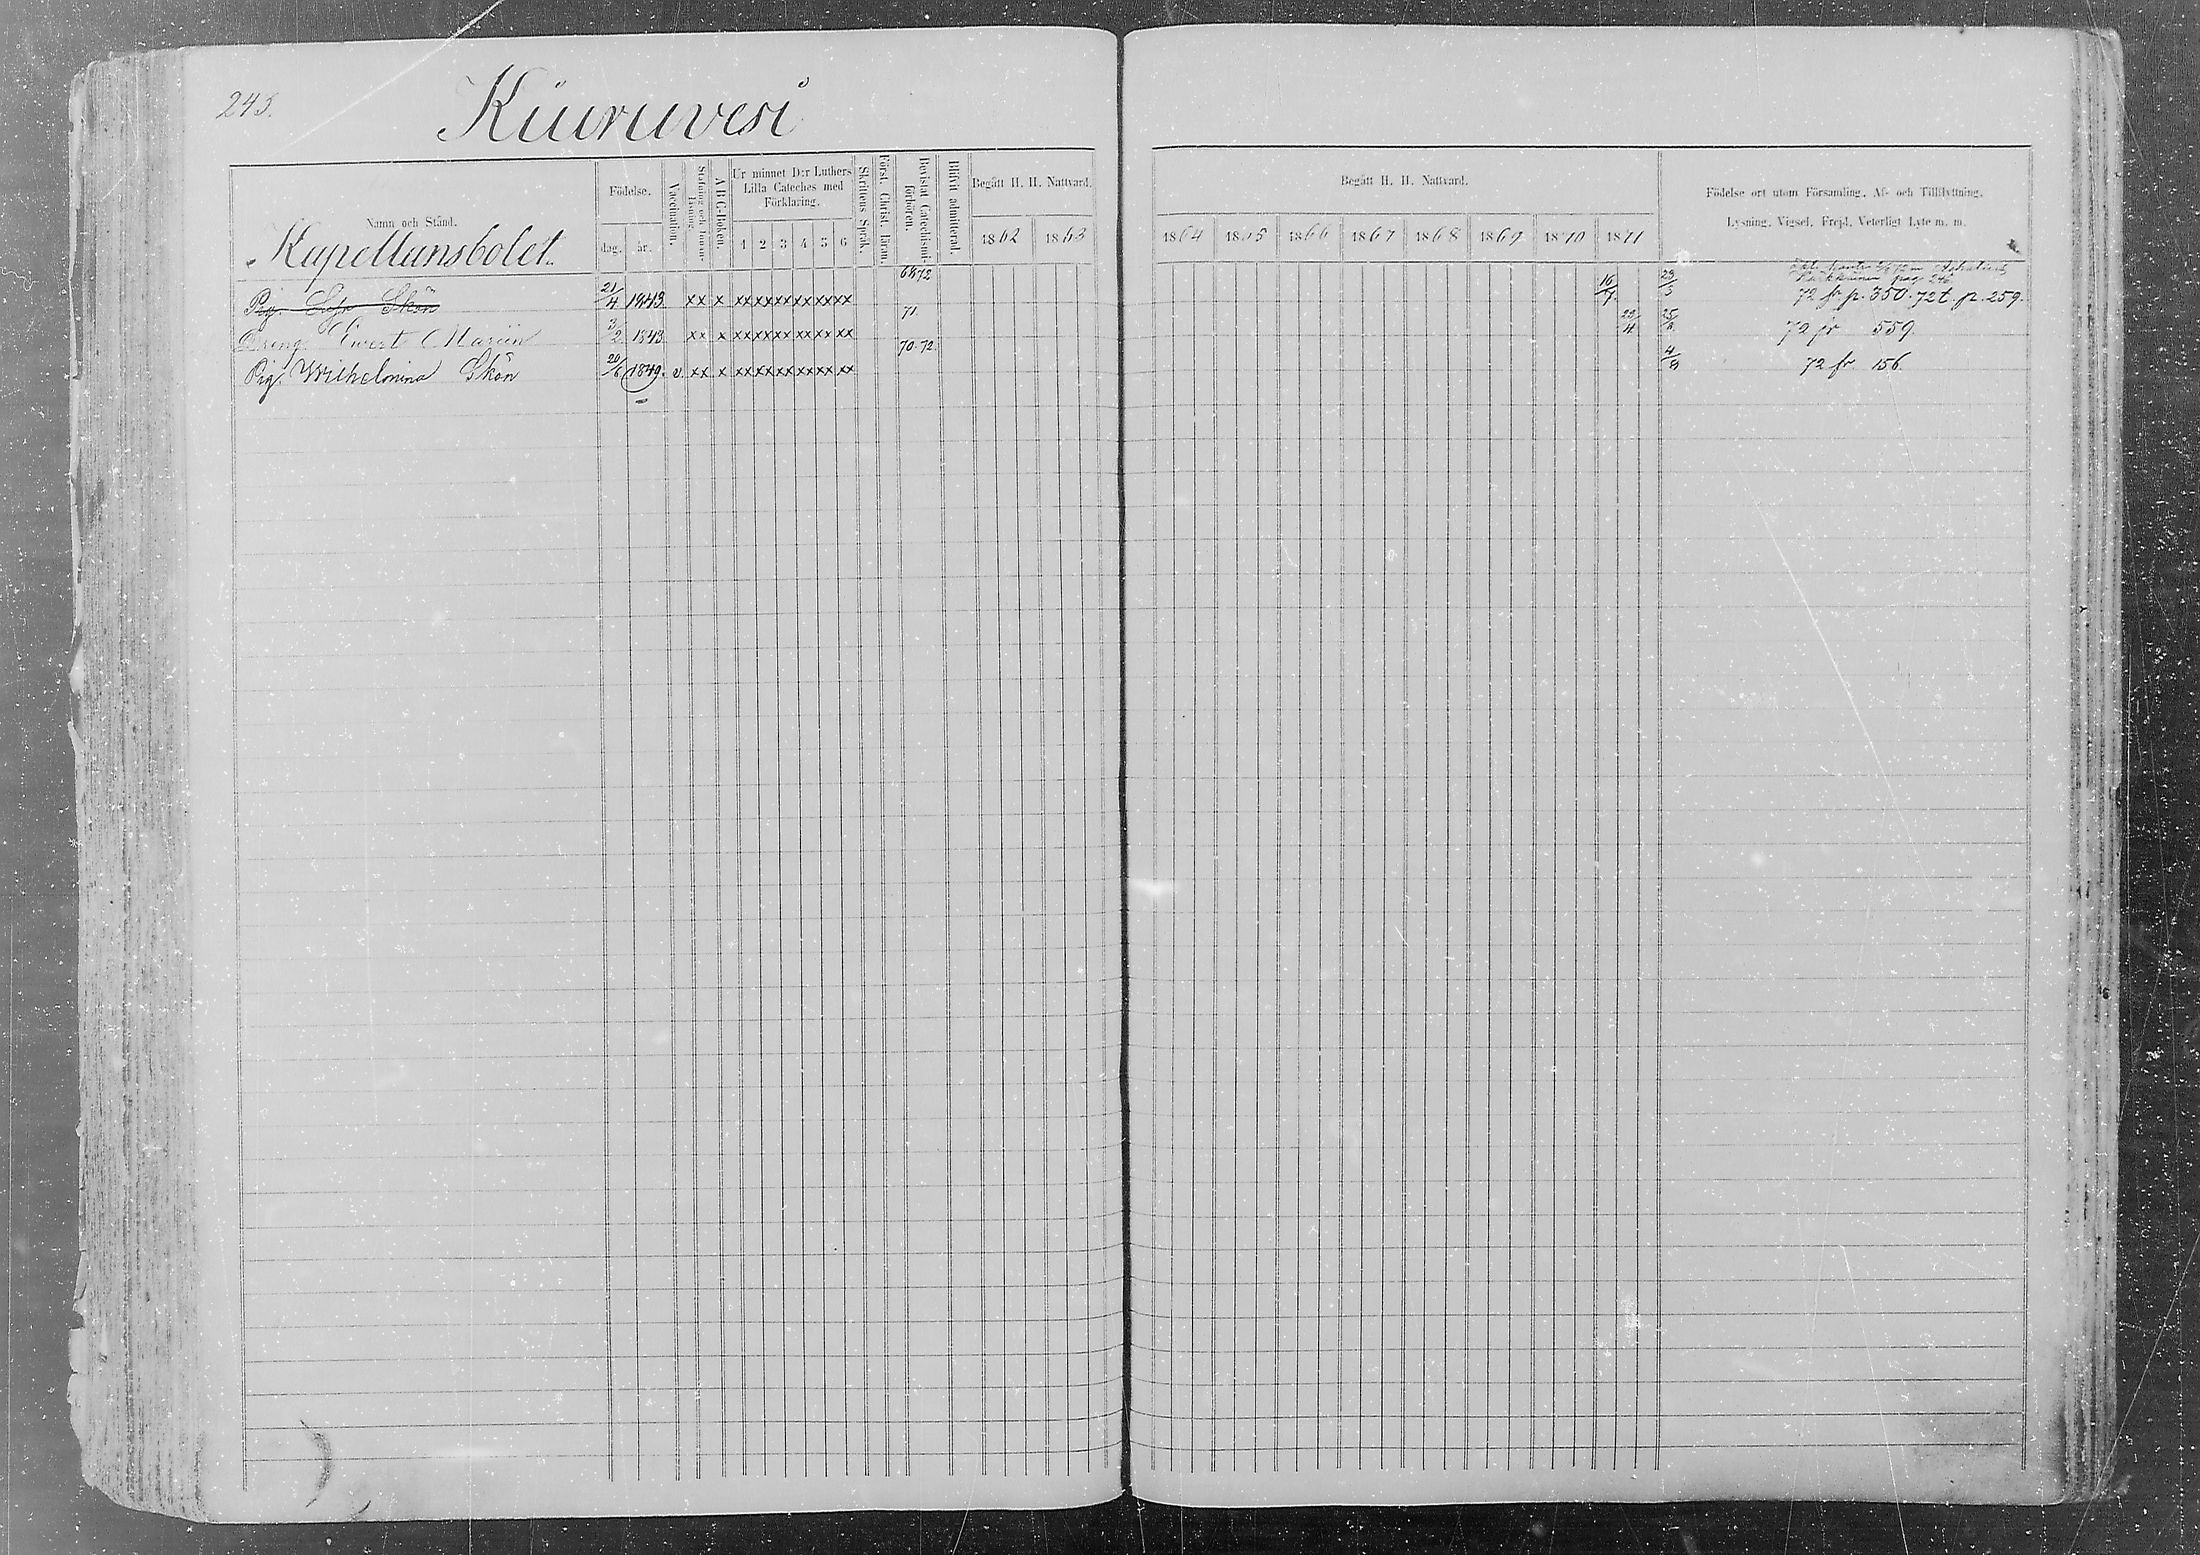 243.
Kiuruvesi
Namn och Stånd.
Födelse.
dag. år.
Vaccination.
A B C-Boken.
Ur minnet D:r Luthers
Lilla Cateches med
Förklaring.
1 2 3 4 5 6
Skriftens Språk.
Först. Christ. läran.
Bevistat Catechismi-
förhören.
Blifvit admitterad.
Begått H. H. Nattvard.
1862 1863
Begått H. H. Nattvard.
1864 1865 1866 1867 1868 1869 1870 1871
Födelse ort utom Församling, Af- och Tillflyttning,
Lysning, Vigsel, Frejd, Veterligt Lyte m. m.
Kapellansbolet.
Pig. Sofia Skön 21/4 1843 xx x xx xx xx xx xx xx 16/7 23/5 72 fr p. 350. 72 t. p. 259.
Dreng Ewert Marin 3/2 1843 xx x xx xx xx xx xx xx 71. 23/4 72 fr 559.
Pig. Wilhelmina Skön 20/6 1849. v. xx x xx xx xx xx xx xx 70. 72. 72 fr 156.